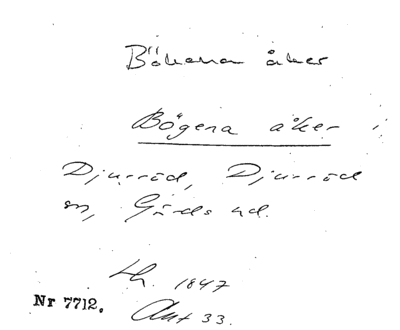 Bökena åker
Bögena åker i
Djurröd, Djurröd
sn, Gärds hd.
Lh. 1847
Nr 7712. Akt 33.